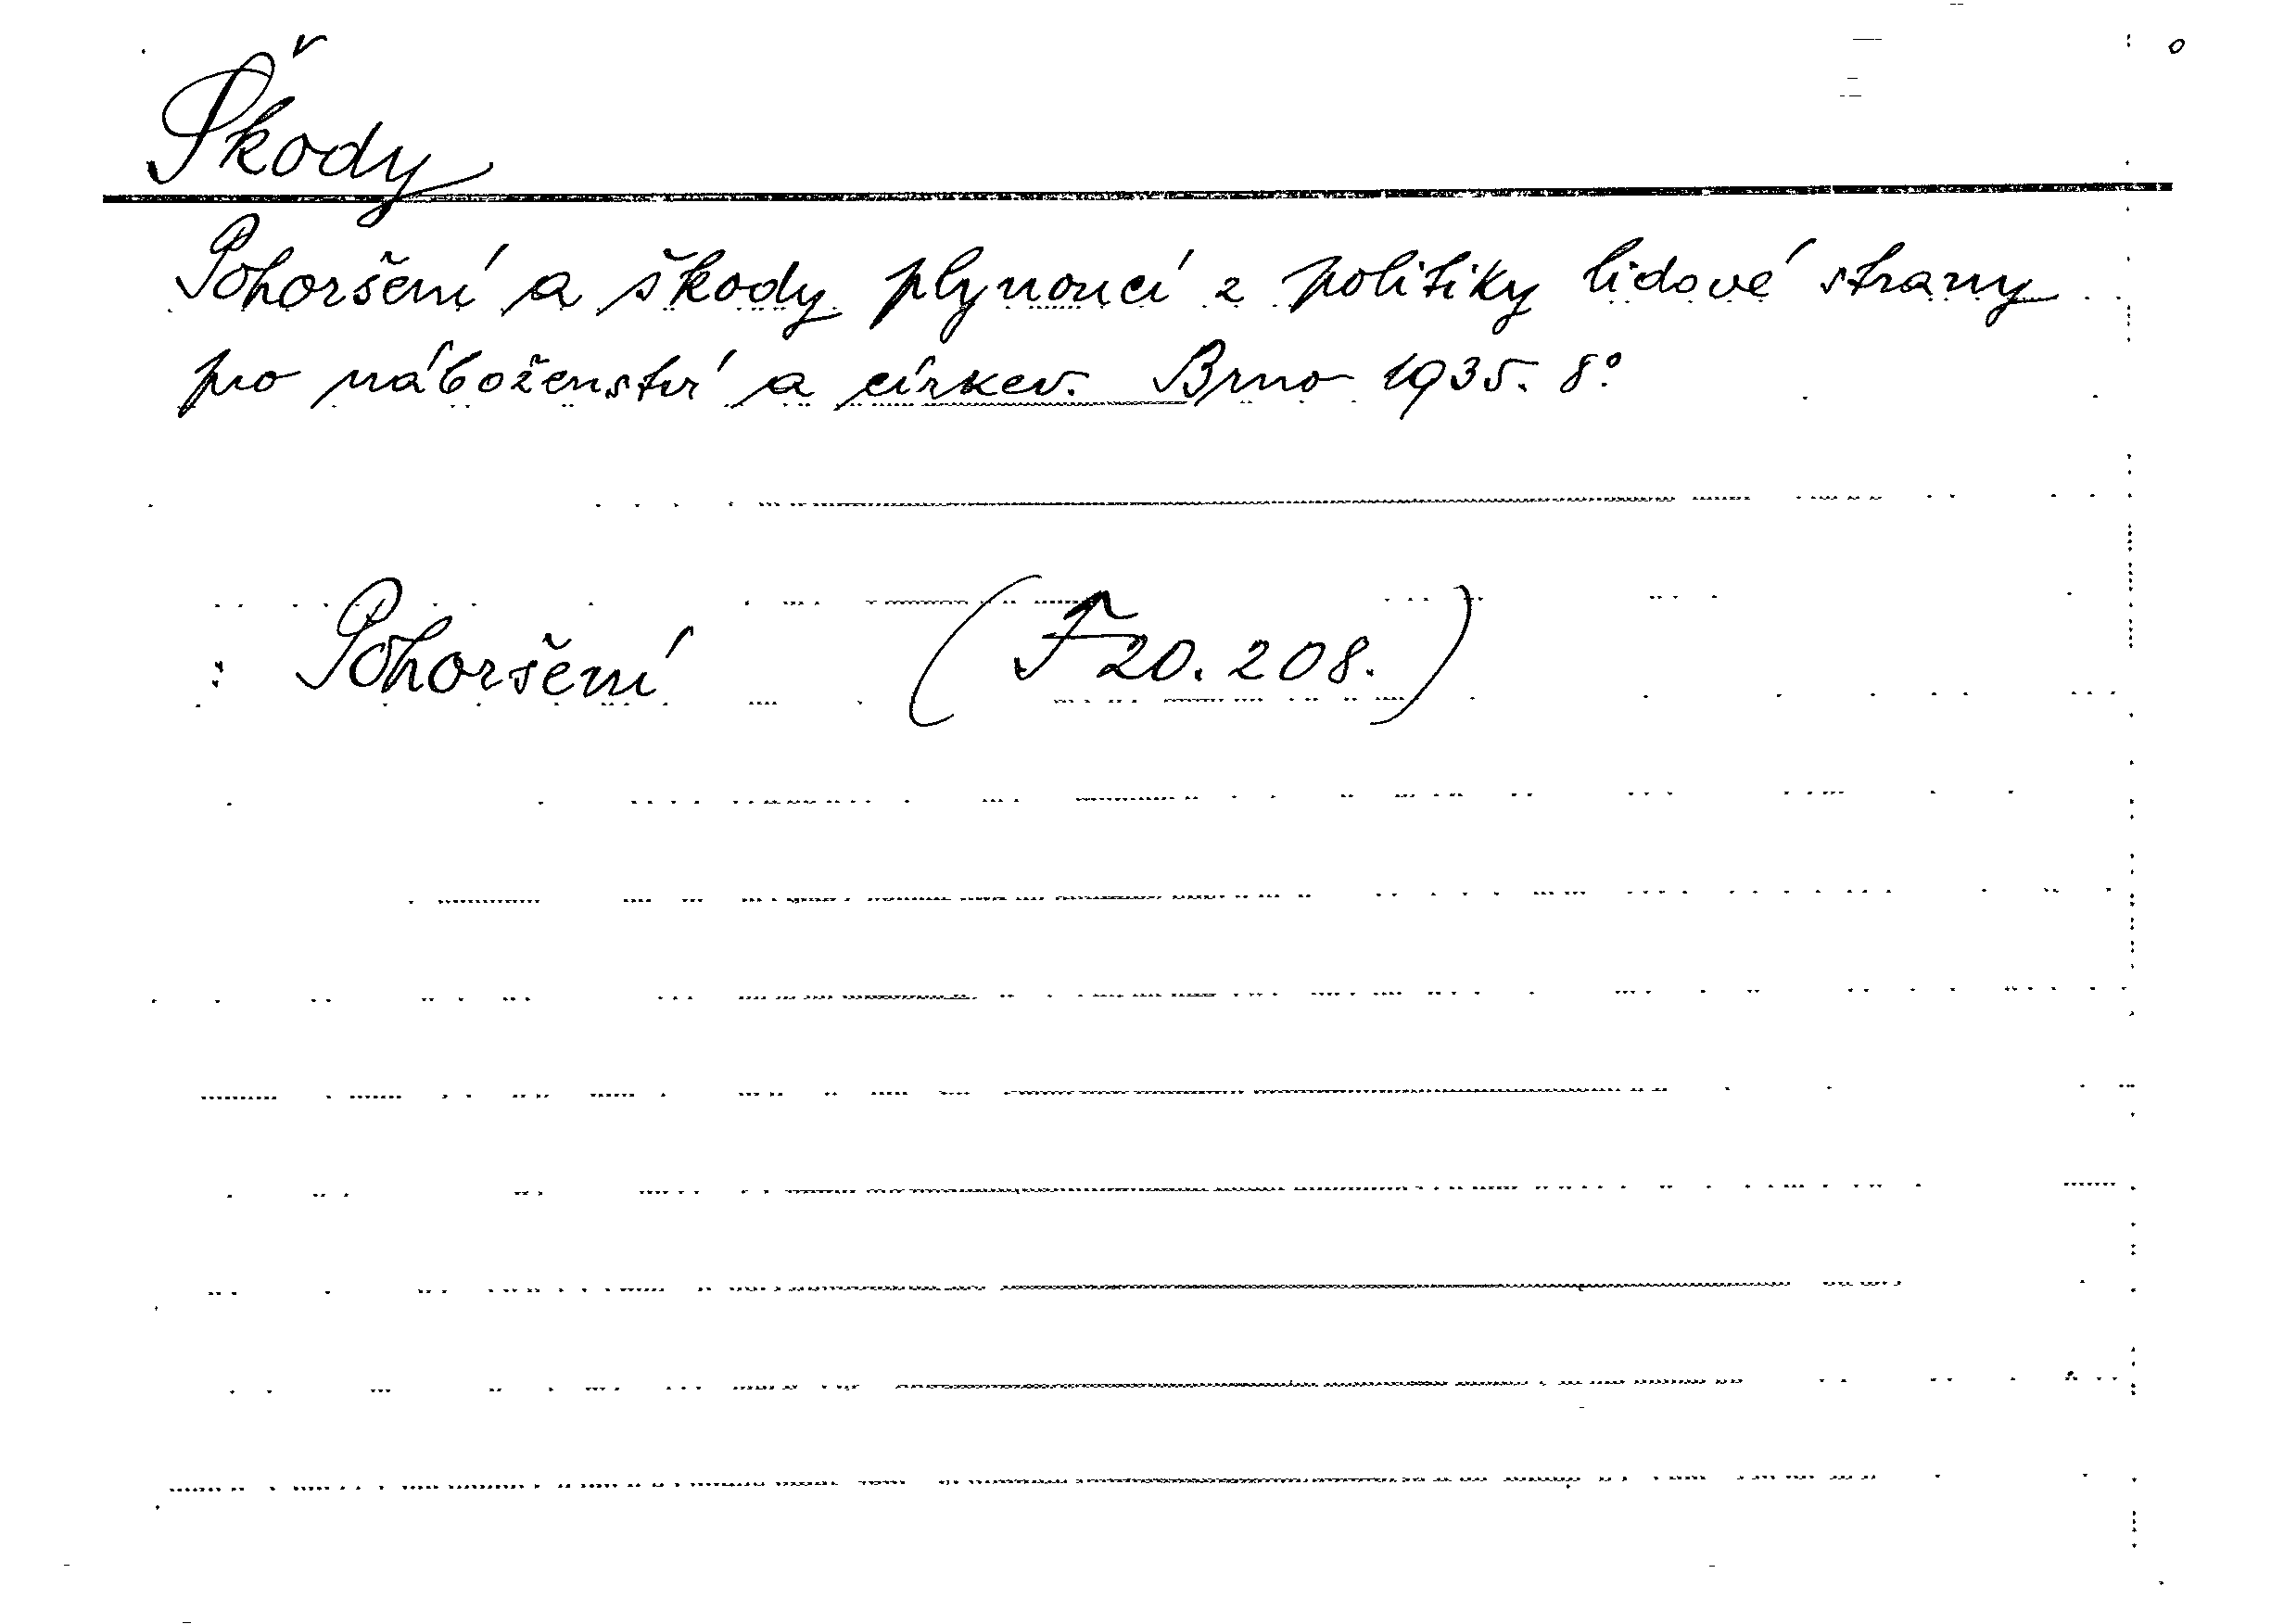 Škody
Pohoršení a škody plynoucí z politiky lidové strany
pro náboženství a církev. Brno 1935. 8°
: Pohoršení (F 20.208.)